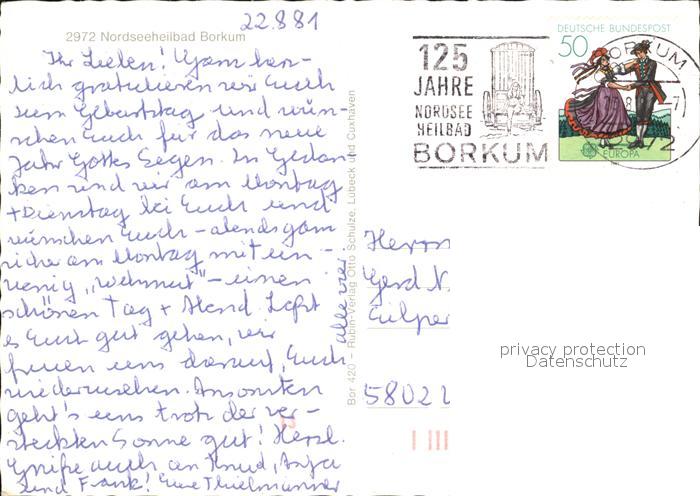 22.8.81
2972 Nordseeheilbad Borkum
Ihr Lieben! Ganz herz-
lich gratulieren wir Euch
zum Geburtstag und wün-
schen Euch für das neue
Jahr Gottes Segen. In Gedan-
ken sind wir am Montag
+ Dienstag bei Euch und
wünschen Euch – abends
am Montag mit ein
wenig „Wehmut" – einen
schönen Tag + Abend. Laßt
es Euch gut gehen, wir
freuen uns darauf, Euch
wiederzusehen. Ansonsten
geht's uns trotz der ver-
steckten Sonne gut! Herzl.
Grüße auch an Knud, Anja
und Frank! Eure Thielmänner
alle vier
Bor 420 – Rubin-Verlag Otto Schulze, Lübeck und Cuxhaven
125
JAHRE
NORDSEE
HEILBAD
BORKUM
DEUTSCHE BUNDESPOST
50
EUROPA
BORKUM
Herrn
Gerd N.
Eilper
5802
privacy protection
Datenschutz